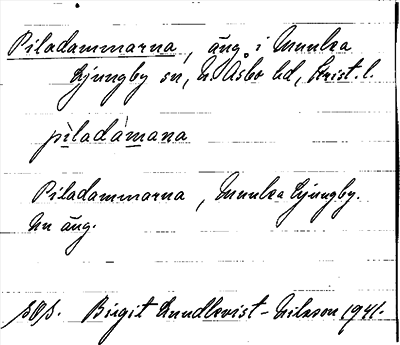 Piladammarna, äng i Munka
Ljungby sn, N. Åsbo hd, Krist. l.
pìladámana
Piladammarna, Munka Ljungby.
Nu äng.
Birgit Lundkvist-Nilsson 1941.